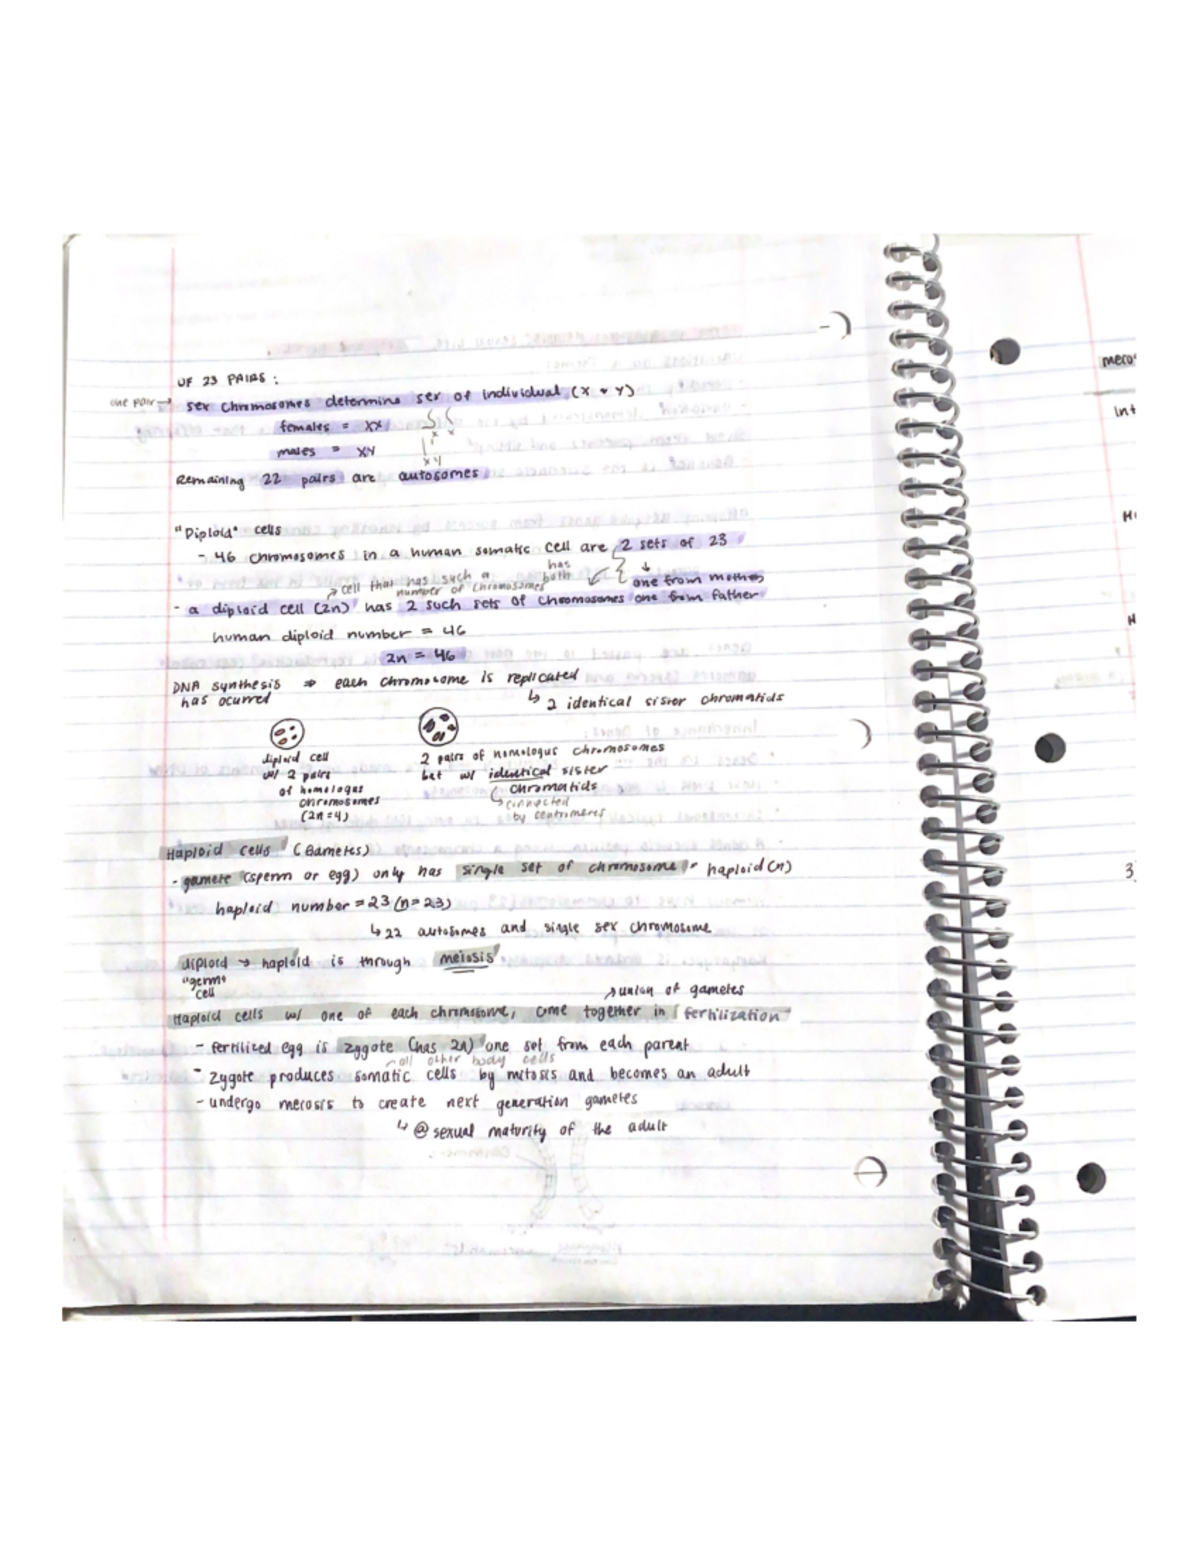 OF 23 PAIRS :
one pair → sex chromosomes determine sex of individual (X & Y)
females = XX
x x
males = XY
x y
Remaining 22 pairs are autosomes
"Diploid" cells
- 46 chromosomes in a human somatic cell are 2 sets of 23
has both
↓
one from mother
cell that has such a number of chromosomes
- a diploid cell (2n) has 2 such sets of chromosomes one from father
human diploid number = 46
2n = 46
DNA synthesis ⇒ each chromosome is replicated
has ocurred
↳ 2 identical sister chromatids
diploid cell
w/ 2 pairs
of homologus
chromosomes
(2n=4)
2 pairs of homologus chromosomes
but w/ identical sister
chromatids
↳ connected
by centromeres
Haploid cells (Gametes)
- gamete (sperm or egg) only has single set of chromosome - haploid (n)
haploid number = 23 (n=23)
↳ 22 autosomes and single sex chromosome
diploid → haploid is through meiosis
"germ"
cell
↗ union of gametes
Haploid cells w/ one of each chromosome, come together in fertilization
- fertilized egg is zygote (has 2n) one set from each parent
all other body cells
- zygote produces somatic cells by mitosis and becomes an adult
- undergo meiosis to create next generation gametes
↳ @ sexual maturity of the adult
meio
Int
H
H
3